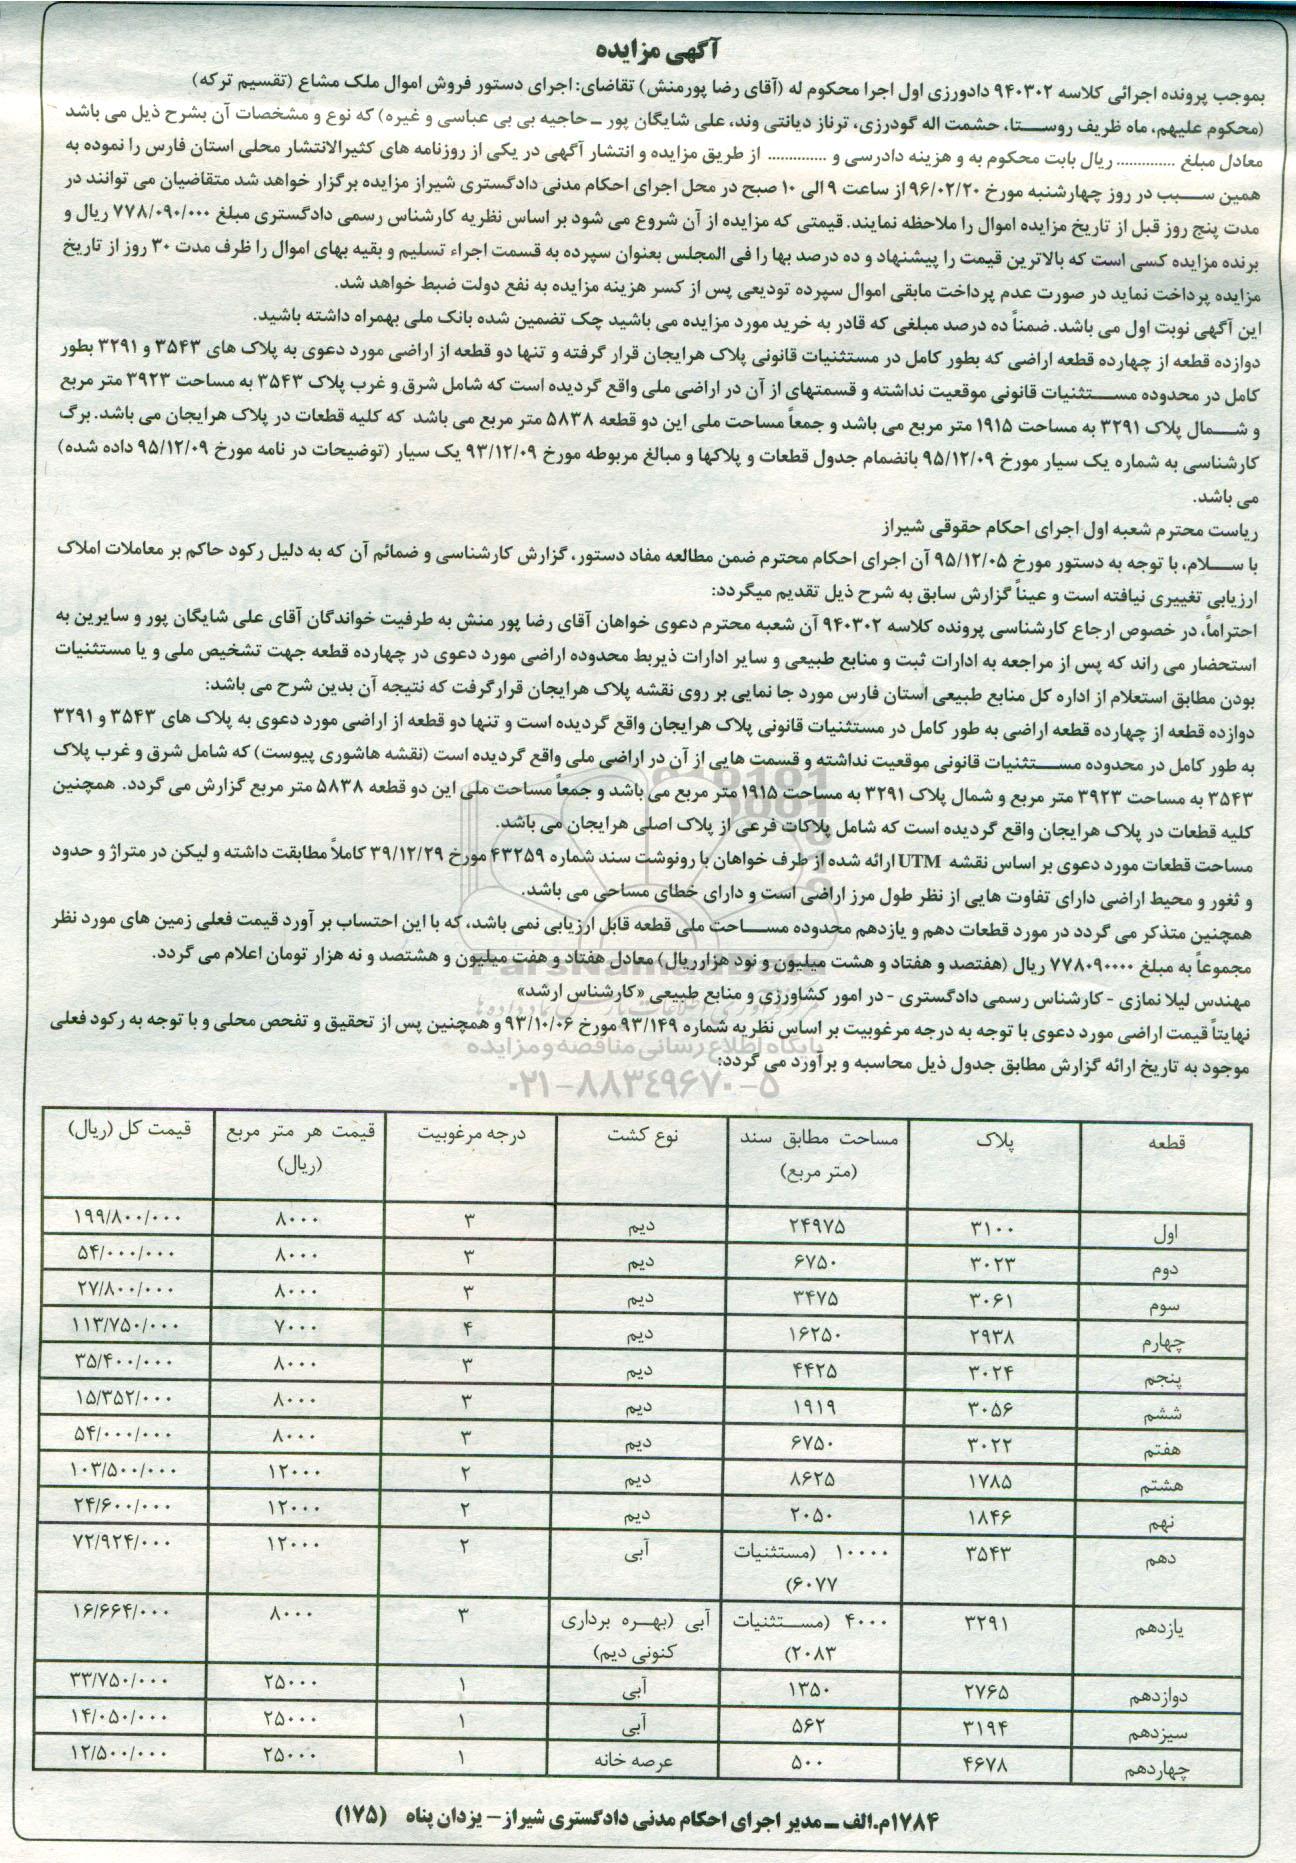 آگهی مزایده
بموجب پرونده اجرائی کلاسه ۹۴۰۳۰۲ دادورزی اول اجرا محکوم له (آقای رضا پورمنش) تقاضای: اجرای دستور فروش اموال ملک مشاع (تقسیم ترکه)
(محکوم علیهم، ماه ظریف روستا، حشمت اله گودرزی، ترناز دیانتی وند، علی شایگان پور ـ حاجیه بی بی عباسی و غیره) که نوع و مشخصات آن بشرح ذیل می باشد
معادل مبلغ .............. ریال بابت محکوم به و هزینه دادرسی و .............. از طریق مزایده و انتشار آگهی در یکی از روزنامه های کثیرالانتشار محلی استان فارس را نموده به
همین سبب در روز چهارشنبه مورخ ۹۶/۰۲/۲۰ از ساعت ۹ الی ۱۰ صبح در محل اجرای احکام مدنی دادگستری شیراز مزایده برگزار خواهد شد متقاضیان می توانند در
مدت پنج روز قبل از تاریخ مزایده اموال را ملاحظه نمایند. قیمتی که مزایده از آن شروع می شود بر اساس نظریه کارشناس رسمی دادگستری مبلغ ۷۷۸/۰۹۰/۰۰۰ ریال و
برنده مزایده کسی است که بالاترین قیمت را پیشنهاد و ده درصد بها را فی المجلس بعنوان سپرده به قسمت اجراء تسلیم و بقیه بهای اموال را ظرف مدت ۳۰ روز از تاریخ
مزایده پرداخت نماید در صورت عدم پرداخت مابقی اموال سپرده تودیعی پس از کسر هزینه مزایده به نفع دولت ضبط خواهد شد.
این آگهی نوبت اول می باشد. ضمناً ده درصد مبلغی که قادر به خرید مورد مزایده می باشید چک تضمین شده بانک ملی بهمراه داشته باشید.
دوازده قطعه از چهارده قطعه اراضی که بطور کامل در مستثنیات قانونی پلاک هرایجان قرار گرفته و تنها دو قطعه از اراضی مورد دعوی به پلاک های ۳۵۴۳ و ۳۲۹۱ بطور
کامل در محدوده مستثنیات قانونی موقعیت نداشته و قسمتهای از آن در اراضی ملی واقع گردیده است که شامل شرق و غرب پلاک ۳۵۴۳ به مساحت ۳۹۲۳ متر مربع
و شمال پلاک ۳۲۹۱ به مساحت ۱۹۱۵ متر مربع می باشد و جمعاً مساحت ملی این دو قطعه ۵۸۳۸ متر مربع می باشد که کلیه قطعات در پلاک هرایجان می باشد. برگ
کارشناسی به شماره یک سیار مورخ ۹۵/۱۲/۰۹ بانضمام جدول قطعات و پلاکها و مبالغ مربوطه مورخ ۹۳/۱۲/۰۹ یک سیار (توضیحات در نامه مورخ ۹۵/۱۲/۰۹ داده شده)
می باشد.
ریاست محترم شعبه اول اجرای احکام حقوقی شیراز
با سلام، با توجه به دستور مورخ ۹۵/۱۲/۰۵ آن اجرای احکام محترم ضمن مطالعه مفاد دستور، گزارش کارشناسی و ضمائم آن که به دلیل رکود حاکم بر معاملات املاک
ارزیابی تغییری نیافته است و عیناً گزارش سابق به شرح ذیل تقدیم میگردد:
احتراماً، در خصوص ارجاع کارشناسی پرونده کلاسه ۹۴۰۳۰۲ آن شعبه محترم دعوی خواهان آقای رضا پور منش به طرفیت خواندگان آقای علی شایگان پور و سایرین به
استحضار می راند که پس از مراجعه به ادارات ثبت و منابع طبیعی و سایر ادارات ذیربط محدوده اراضی مورد دعوی در چهارده قطعه جهت تشخیص ملی و یا مستثنیات
بودن مطابق استعلام از اداره کل منابع طبیعی استان فارس مورد جا نمایی بر روی نقشه پلاک هرایجان قرارگرفت که نتیجه آن بدین شرح می باشد:
دوازده قطعه از چهارده قطعه اراضی به طور کامل در مستثنیات قانونی پلاک هرایجان واقع گردیده است و تنها دو قطعه از اراضی مورد دعوی به پلاک های ۳۵۴۳ و ۳۲۹۱
به طور کامل در محدوده مستثنیات قانونی موقعیت نداشته و قسمت هایی از آن در اراضی ملی واقع گردیده است (نقشه هاشوری پیوست) که شامل شرق و غرب پلاک
۳۵۴۳ به مساحت ۳۹۲۳ متر مربع و شمال پلاک ۳۲۹۱ به مساحت ۱۹۱۵ متر مربع می باشد و جمعاً مساحت ملی این دو قطعه ۵۸۳۸ متر مربع گزارش می گردد. همچنین
کلیه قطعات در پلاک هرایجان واقع گردیده است که شامل پلاکات فرعی از پلاک اصلی هرایجان می باشد.
مساحت قطعات مورد دعوی بر اساس نقشه UTM ارائه شده از طرف خواهان با رونوشت سند شماره ۴۳۲۵۹ مورخ ۳۹/۱۲/۲۹ کاملاً مطابقت داشته و لیکن در متراژ و حدود
و ثغور و محیط اراضی دارای تفاوت هایی از نظر طول مرز اراضی است و دارای خطای مساحی می باشد.
همچنین متذکر می گردد در مورد قطعات دهم و یازدهم محدوده مساحت ملی قطعه قابل ارزیابی نمی باشد، که با این احتساب بر آورد قیمت فعلی زمین های مورد نظر
مجموعاً به مبلغ ۷۷۸۰۹۰۰۰۰ ریال (هفتصد و هفتاد و هشت میلیون و نود هزارریال) معادل هفتاد و هفت میلیون و هشتصد و نه هزار تومان اعلام می گردد.
مهندس لیلا نمازی - کارشناس رسمی دادگستری - در امور کشاورزی و منابع طبیعی «کارشناس ارشد»
نهایتاً قیمت اراضی مورد دعوی با توجه به درجه مرغوبیت بر اساس نظریه شماره ۹۳/۱۴۹ مورخ ۹۳/۱۰/۰۶ و همچنین پس از تحقیق و تفحص محلی و با توجه به رکود فعلی
پایگاه اطلاع رسانی مناقصه و مزایده
موجود به تاریخ ارائه گزارش مطابق جدول ذیل محاسبه و برآورد می گردد:
۰۲۱-۸۸۳۴۹۶۷۰-۵
قطعه پلاک مساحت مطابق سند (متر مربع) نوع کشت درجه مرغوبیت قیمت هر متر مربع (ریال) قیمت کل (ریال)
اول ۳۱۰۰ ۲۴۹۷۵ دیم ۳ ۸۰۰۰ ۱۹۹/۸۰۰/۰۰۰
دوم ۳۰۲۳ ۶۷۵۰ دیم ۳ ۸۰۰۰ ۵۴/۰۰۰/۰۰۰
سوم ۳۰۶۱ ۳۴۷۵ دیم ۳ ۸۰۰۰ ۲۷/۸۰۰/۰۰۰
چهارم ۲۹۳۸ ۱۶۲۵۰ دیم ۴ ۷۰۰۰ ۱۱۳/۷۵۰/۰۰۰
پنجم ۳۰۲۴ ۴۴۲۵ دیم ۳ ۸۰۰۰ ۳۵/۴۰۰/۰۰۰
ششم ۳۰۵۶ ۱۹۱۹ دیم ۳ ۸۰۰۰ ۱۵/۳۵۲/۰۰۰
هفتم ۳۰۲۲ ۶۷۵۰ دیم ۳ ۸۰۰۰ ۵۴/۰۰۰/۰۰۰
هشتم ۱۷۸۵ ۸۶۲۵ دیم ۲ ۱۲۰۰۰ ۱۰۳/۵۰۰/۰۰۰
نهم ۱۸۴۶ ۲۰۵۰ دیم ۲ ۱۲۰۰۰ ۲۴/۶۰۰/۰۰۰
دهم ۳۵۴۳ ۱۰۰۰۰ (مستثنیات ۶۰۷۷) آبی ۲ ۱۲۰۰۰ ۷۲/۹۲۴/۰۰۰
یازدهم ۳۲۹۱ ۴۰۰۰ (مستثنیات ۲۰۸۳) آبی (بهره برداری کنونی دیم) ۳ ۸۰۰۰ ۱۶/۶۶۴/۰۰۰
دوازدهم ۲۷۶۵ ۱۳۵۰ آبی ۱ ۲۵۰۰۰ ۳۳/۷۵۰/۰۰۰
سیزدهم ۳۱۹۴ ۵۶۲ آبی ۱ ۲۵۰۰۰ ۱۴/۰۵۰/۰۰۰
چهاردهم ۴۶۷۸ ۵۰۰ عرصه خانه ۱ ۲۵۰۰۰ ۱۲/۵۰۰/۰۰۰
۱۷۸۴/م.الف ـ مدیر اجرای احکام مدنی دادگستری شیراز- یزدان پناه (۱۷۵)